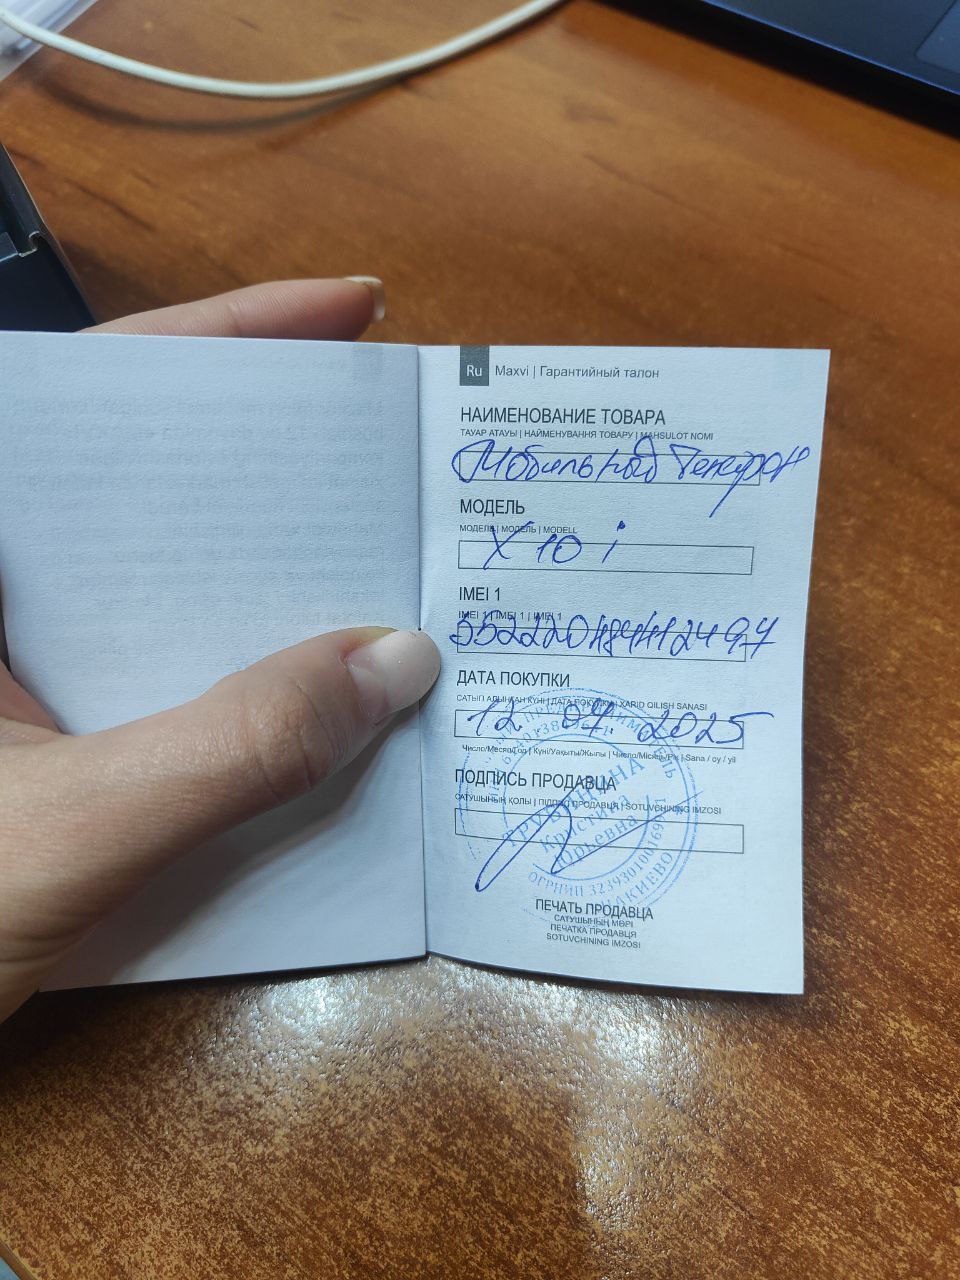 Ru Maxvi | Гарантийный талон
НАИМЕНОВАНИЕ ТОВАРА
ТАУАР АТАУЫ | НАЙМЕНУВАННЯ ТОВАРУ | MAHSULOT NOMI
Мобильный Телефон
МОДЕЛЬ
МОДЕЛЬ | МОДЕЛЬ | MODELL
X 10 i
IMEI 1
IMEI 1 | IMEI 1 | IMEI 1
ДАТА ПОКУПКИ
САТЫП АЛЫНҒАН КҮНІ | ДАТА ПОКУПКИ | XARID QILISH SANASI
12 07 2025
Число/Месяц/Год | Күні/Уақыты/Жылы | Число/Місяць/Рік | Sana / oy / yil
ПОДПИСЬ ПРОДАВЦА
САТУШЫНЫҢ ҚОЛЫ | ПІДПИС ПРОДАВЦЯ | SOTUVCHINING IMZOSI
Кристина
Юрьевна
ПЕЧАТЬ ПРОДАВЦА
САТУШЫНЫҢ МӨРІ
ПЕЧАТКА ПРОДАВЦЯ
SOTUVCHINING IMZOSI